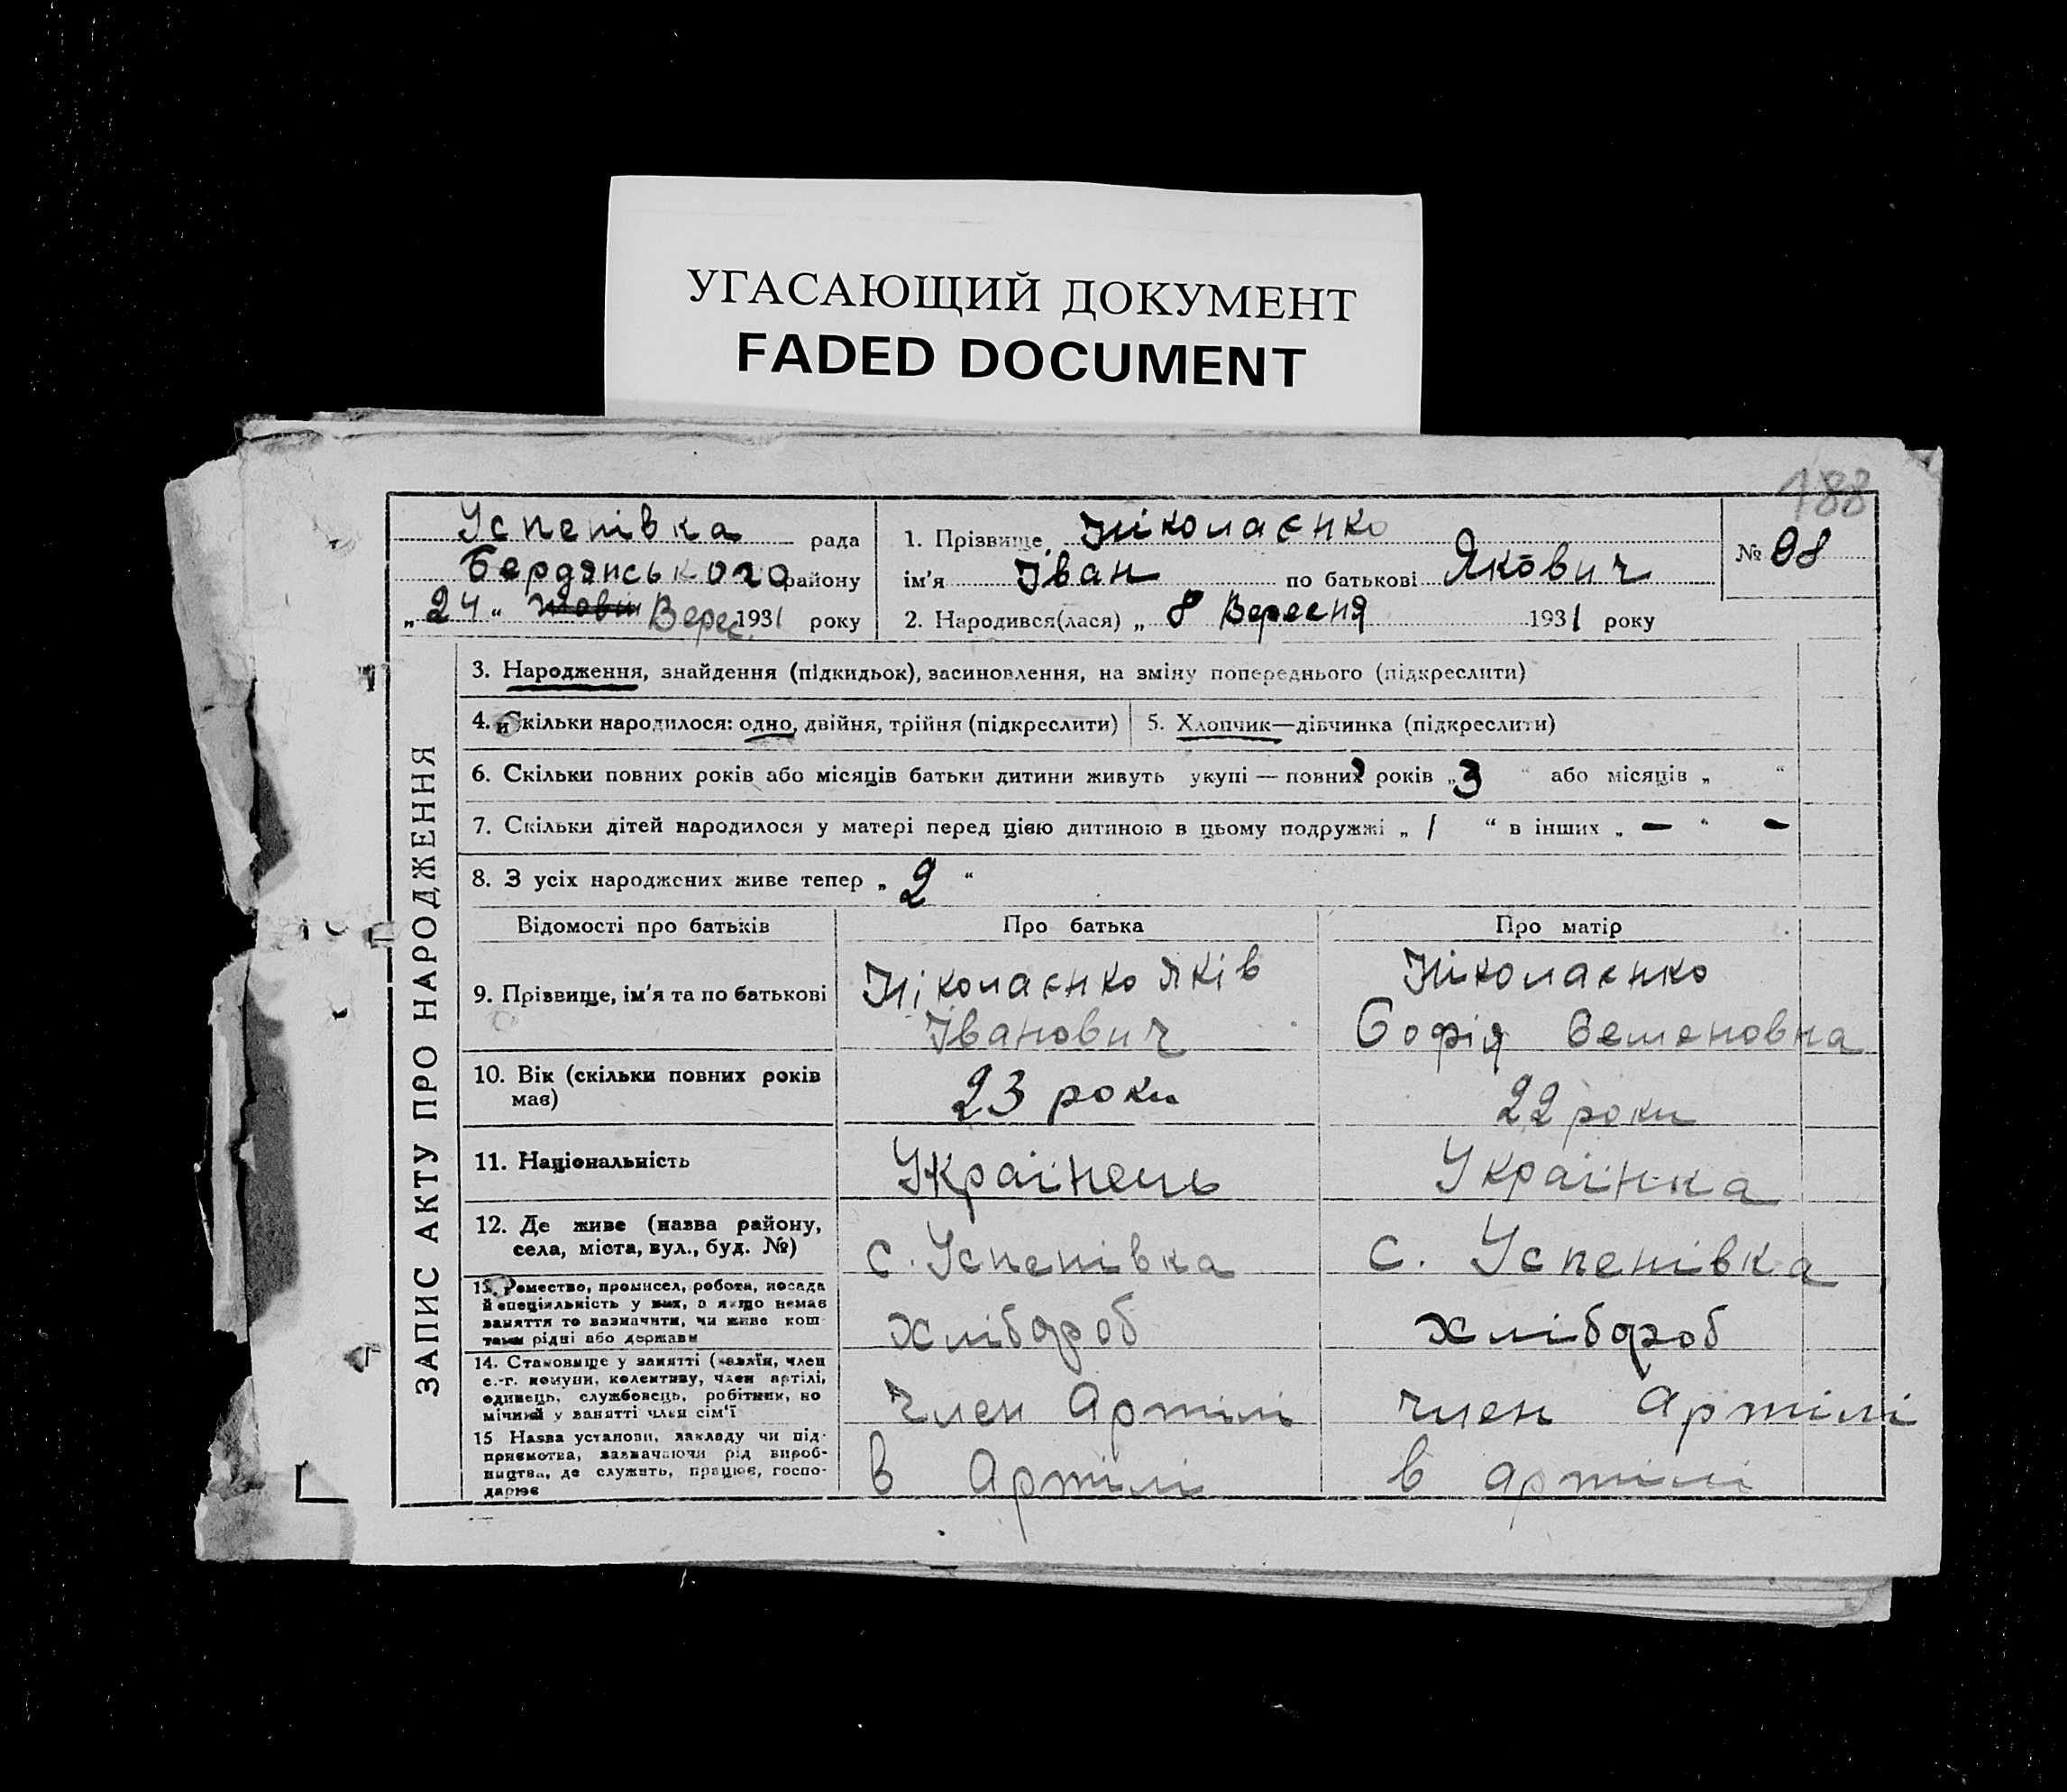 УГАСАЮЩИЙ ДОКУМЕНТ
FADED DOCUMENT
188
Успенівка рада
Бердянського району
„ 24 “ Верес 1931 року
1. Прізвище Ніколаєнко
ім'я Іван по батькові Якович
2. Народився(лася) „ 8 Вересня 1931 року
№ 98
ЗАПИС АКТУ ПРО НАРОДЖЕННЯ
3. Народження, знайдення (підкидьок), засиновлення, на зміну попереднього (підкреслити)
4. Скільки народилося: одно, двійня, трійня (підкреслити)
5. Хлопчик—дівчинка (підкреслити)
6. Скільки повних років або місяців батьки дитини живуть укупі — повних років „ 3 “ або місяців „ “
7. Скільки дітей народилося у матері перед цією дитиною в цьому подружжі „ 1 “ в інших „ — “ —
8. З усіх народжених живе тепер „ 2 “
Відомості про батьків Про батька Про матір
9. Прізвище, ім'я та по батькові
Ніколаєнко Яків
Іванович
Ніколаєнко
Софія Семеновна
10. Вік (скільки повних років
має)
23 роки
22 роки
11. Національність
Українець
Українка
12. Де живе (назва району,
села, міста, вул., буд. №)
с. Успенівка
с. Успенівка
13. Ремество, промисел, робота, посада
й спеціяльність у них, а якщо немає
заняття то зазначити, чи живе кош-
тами рідні або держави
хлібороб
хлібороб
14. Становище у занятті (хазяїн, член
с.-г. комуни, колективу, член артілі,
одинець, службовець, робітник, по
мічний у занятті член сім'ї
Член Артілі
член Артілі
15 Назва установи, закладу чи під-
приємства, зазначаючи рід вироб-
ництва, де служить, працює, госпо-
дарює
в Артілі
в артілі